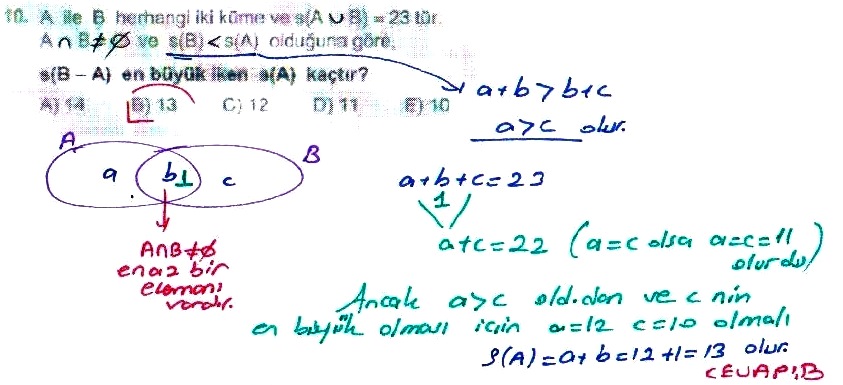 10. A ile B herhangi iki küme ve s(A ∪ B) = 23 tür.
A ∩ B ≠ ∅ ve s(B) < s(A) olduğuna göre,
s(B – A) en büyük iken s(A) kaçtır?
A) 14 B) 13 C) 12 D) 11 E) 10
a+b>b+c
a>c olur.
A B
a b 1 c
a+b+c=23
1
a+c=22 (a=c olsa a=c=11
olurdu)
A∩B≠∅
en az bir
elemanı
vardır.
Ancak a>c old.dan ve c nin
en büyük olması için a=12 c=10 olmalı
s(A)=a+b=12+1=13 olur.
CEVAP:B